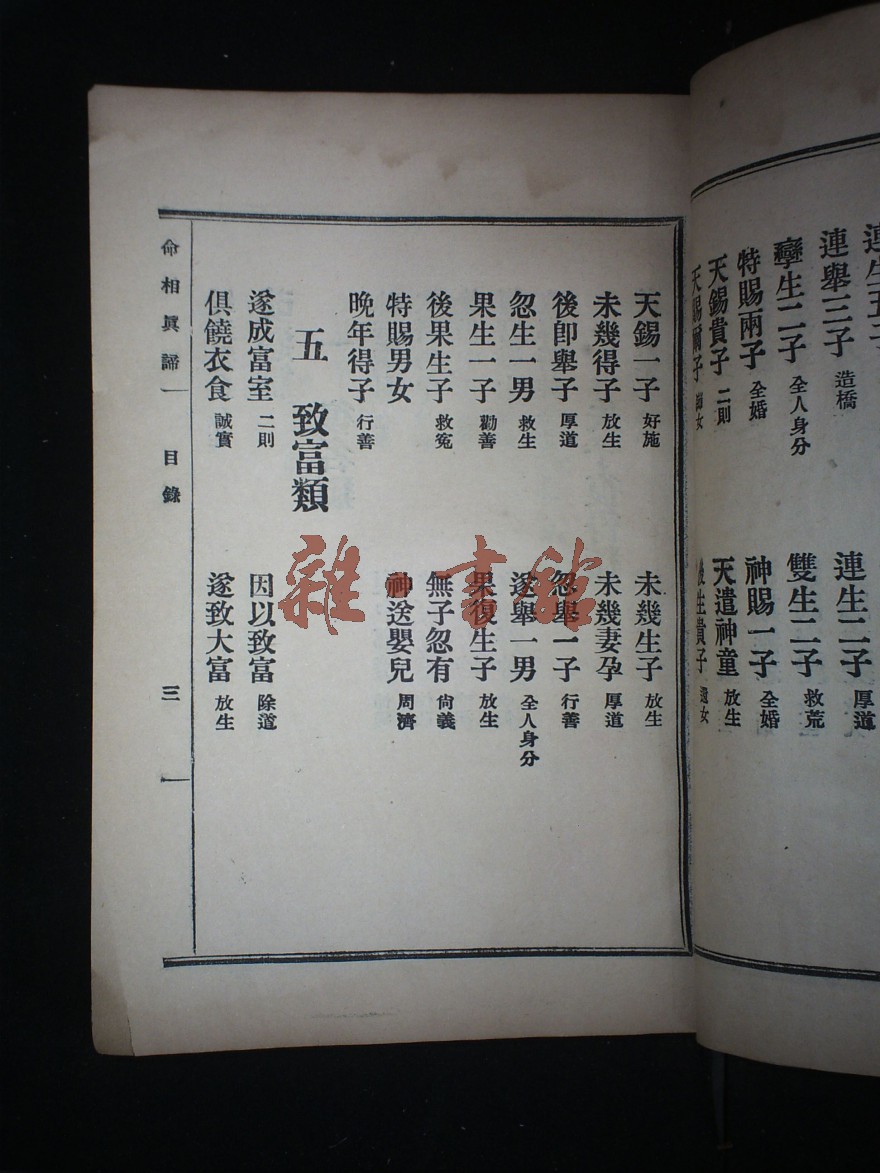 連舉三子 造橋 連生二子 厚道
孿生二子 全人身分 雙生二子 救荒
特賜兩子 全婚 神賜一子 全婚
天錫貴子 二則 天遣神童 放生
生貴子
天錫一子 好施 未幾生子 放生
未幾得子 放生 未幾妻孕 厚道
後卽舉子 厚道 忽舉一子 行善
忽生一男 救生 遂舉一男 全人身分
果生一子 勸善 果復生子 放生
後果生子 救冤 無子忽有 尙義
特賜男女 神送嬰兒 周濟
晚年得子 行善
五 致富類
遂成富室 二則 因以致富 除道
俱饒衣食 誠實 遂致大富 放生
命相眞諦 目錄 三
雜·書館